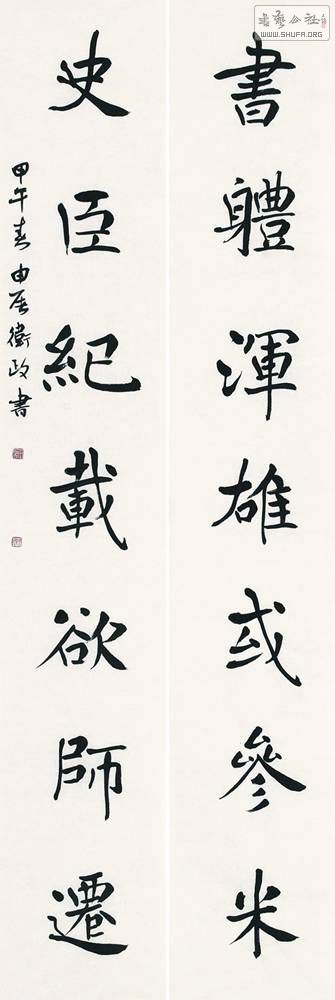 書體渾雄或參米
史臣紀載欲師遷
甲午春由居衛政書
書藝公社
WWW.SHUFA.ORG